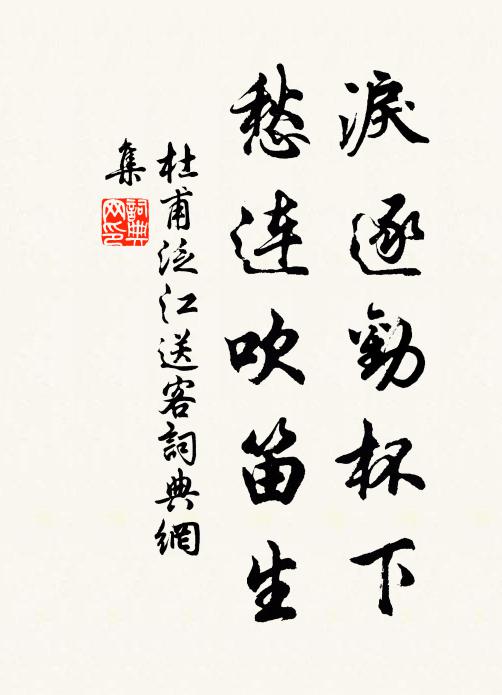 淚逐勸杯下
愁連吹笛生
杜甫泛江送客詞典網
集
詞典
网印